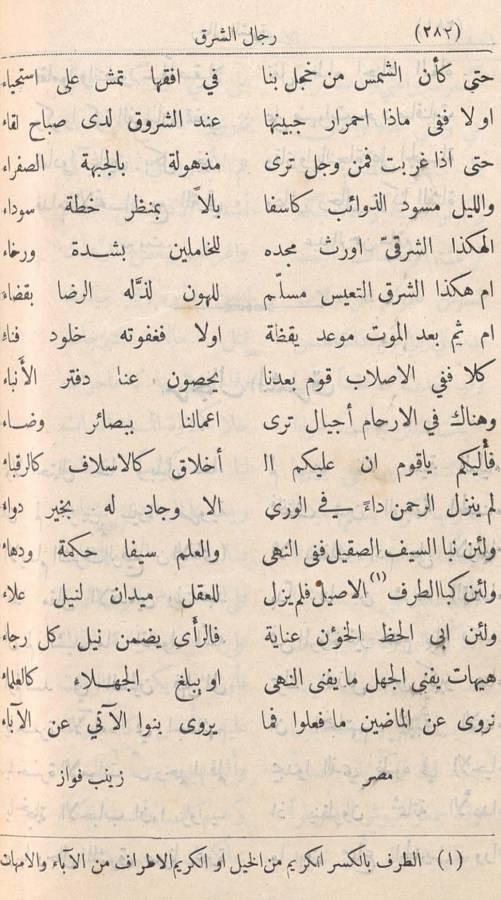 (٢٨٢) رجال الشرق
حتى كأن الشمس من خجل بنا في افقها تمشى على استحياء
او لا ففى ماذا احمرار جبينها عند الشروق لدى صباح لقاء
حتى اذا غربت فمن وجل ترى مذهولة بالجبهة الصفراء
والليل مسود الذوائب كاسفا بالاً بمنظر خطة سوداء
الهكذا الشرقيّ اورث مجده للخاملين بشدة ورخاء
ام هكذا الشرق التعيس مسلّم للهون لذّله الرضا بقضاء
ام ثم بعد الموت موعد يقظة اولا فغفوته خلود فناء
كلا ففي الاصلاب قوم بعدنا يحصون عنا دفتر الأنباء
وهناك في الارحام أجيال ترى اعمالنا ببصائر وضاء
فأليكم ياقوم ان عليكم ال أخلاق كالاسلاف كالرقباء
لم ينزل الرحمن داءً في الورى الا وجاد له بخير دواء
ولئن نبا السيف الصقيل ففى النهى والعلم سيفا حكمة ودهاء
ولئن كبا الطرف (١) الاصيل فلم يزل للعقل ميدان لنيل علاء
ولئن ابى الحظ الخؤن عناية فالرأى يضمن نيل كل رجاء
هيهات يفنى الجهل ما يفنى النهى او يبلغ الجهلاء كالعلماء
نروى عن الماضين ما فعلوا فما يروى بنوا الآتي عن الآباء
مصر زينب فواز
(١) الطرف بالكسر الكريم من الخيل او الكريم الاطراف من الآباء والامهات